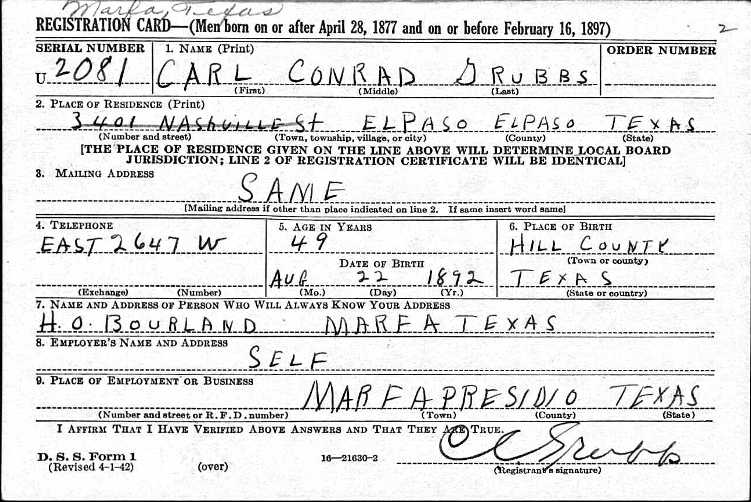 Marfa, Texas
REGISTRATION CARD—(Men born on or after April 28, 1877 and on or before February 16, 1897)
2
SERIAL NUMBER 1. NAME (Print) ORDER NUMBER
U 2081 CARL CONRAD GRUBBS
(First) (Middle) (Last)
2. PLACE OF RESIDENCE (Print)
3401 NASHVILLE St ELPASO ELPASO TEXAS
(Number and street) (Town, township, village, or city) (County) (State)
[THE PLACE OF RESIDENCE GIVEN ON THE LINE ABOVE WILL DETERMINE LOCAL BOARD
JURISDICTION; LINE 2 OF REGISTRATION CERTIFICATE WILL BE IDENTICAL]
3. MAILING ADDRESS
SAME
[Mailing address if other than place indicated on line 2. If same insert word same]
4. TELEPHONE 5. AGE IN YEARS 6. PLACE OF BIRTH
EAST 2647 W 49 HILL COUNTY
DATE OF BIRTH (Town or county)
AUG 22 1892 TEXAS
(Exchange) (Number) (Mo.) (Day) (Yr.) (State or country)
7. NAME AND ADDRESS OF PERSON WHO WILL ALWAYS KNOW YOUR ADDRESS
H. O. BOURLAND MARFA TEXAS
8. EMPLOYER'S NAME AND ADDRESS
SELF
9. PLACE OF EMPLOYMENT OR BUSINESS
MARFA PRESIDIO TEXAS
(Number and street or R. F. D. number) (Town) (County) (State)
I AFFIRM THAT I HAVE VERIFIED ABOVE ANSWERS AND THAT THEY ARE TRUE.
C C Grubbs
D. S. S. Form 1
(Revised 4-1-42) (over) 16—21630-2 (Registrant's signature)